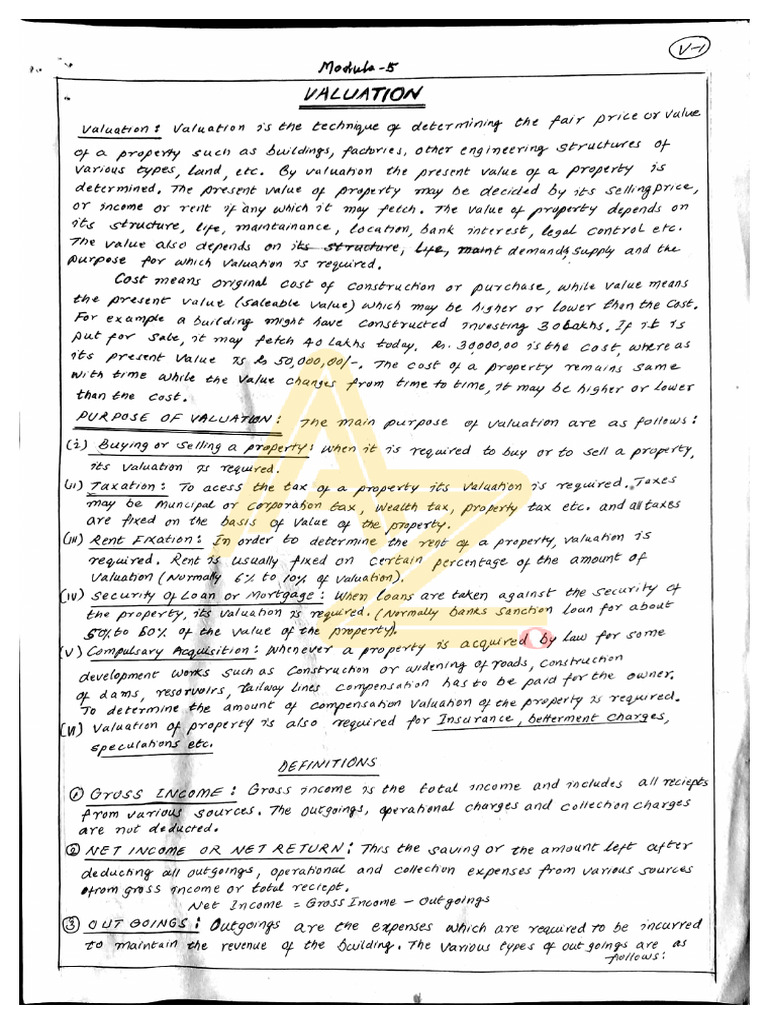 V-1
Module-5
VALUATION
Valuation: Valuation is the technique of determining the fair price or value
of a property such as buildings, factories, other engineering structures of
various types, land, etc. By valuation the present value of a property is
determined. The present value of property may be decided by its selling price,
or income or rent if any which it may fetch. The value of property depends on
its structure, life, maintainance, location, bank interest, legal control etc.
The value also depends on its structure, life, maint demand & supply and the
purpose for which valuation is required.
Cost means original cost of construction or purchase, while value means
the present value (saleable value) which may be higher or lower than the cost.
For example a building might have constructed investing 30 Lakhs. If it is
put for sale, it may fetch 40 Lakhs today. Rs. 30,000,00 is the cost, where as
its present value is Rs 50,000,00/-. The cost of a property remains same
with time while the value changes from time to time, it may be higher or lower
than the cost.
PURPOSE OF VALUATION: The main purpose of valuation are as follows:
(i) Buying or Selling a property: When it is required to buy or to sell a property,
its valuation is required.
(ii) Taxation: To acess the tax of a property its valuation is required. Taxes
may be Muncipal or corporation tax, wealth tax, property tax etc. and all taxes
are fixed on the basis of value of the property.
(iii) Rent Fixation: In order to determine the rent of a property, valuation is
required. Rent is usually fixed on certain percentage of the amount of
valuation (Normally 6% to 10% of valuation).
(iv) Security of Loan or Mortgage: When loans are taken against the security of
the property, its valuation is required. (Normally banks sanction loan for about
50% to 60% of the value of the property).
(v) Compulsary Acquisition: Whenever a property is acquired by law for some
development works such as construction or widening of roads, construction
of dams, resorvoirs, railway lines compensation has to be paid for the owner.
To determine the amount of compensation valuation of the property is required.
(vi) Valuation of property is also required for Insurance, betterment charges,
speculations etc.
DEFINITIONS
① GROSS INCOME: Gross income is the total income and includes all reciepts
from various sources. The outgoings, operational charges and collection charges
are not deducted.
② NET INCOME OR NET RETURN: This the saving or the amount left after
deducting all outgoings, operational and collection expenses from various sources
from gross income or total reciept.
Net Income = Gross Income - Outgoings
③ OUT GOINGS: Outgoings are the expenses which are required to be incurred
to maintain the revenue of the building. The various types of out goings are as
follows:
AZ